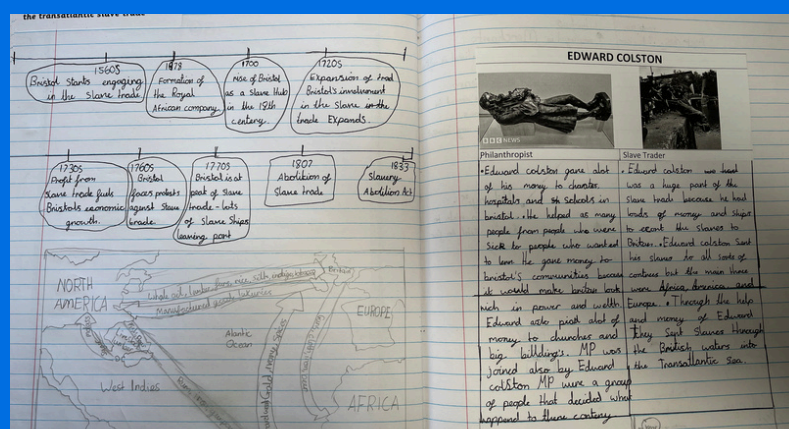 the transatlantic slave trade
1560S
Bristol Starts engaging
in the slave trade
1672
Formation of
the Royal
African company
1700
Rise of Bristol
as a Slave Hub
in the 18th
century.
1720S
Expansion of trad
Bristol's involvement
in the Slave in the
trade Expands.
1730S
Profit from
slave trade fuels
Bristols economic
growth.
1760S
Bristol
faces protests
against Slave
trade.
1770S
Bristol is at
peak of Slave
trade - lots
of Slave Ships
leaving port
1807
Abolition of
Slave trade
1833
Slavery
Abolition Act
NORTH
AMERICA
Whale oil, lumber, furs, rice, silk, indigo, tobacco
Manufactured goods, luxuries
Britain
EUROPE
Atlantic
Ocean
West Indies
AFRICA
EDWARD COLSTON
BBC NEWS
Philanthropist
•Edward colston gave alot
of his money to charter
hospitals and sh schools in
bristol. He helped as many
people from people who were
Sick to people who wanted
to learn He gave money to
bristol's communities becaus
it would make bristow look
rich in power and welth
Edward aslo piad alot of
money to churches and
big building's. MP was
joined also by Edward
colston MP were a group
of people that decided what
happend to there contery
Slave Trader
•Edward colston was
was a huge part of the
Slave trade because he had
loads of money and ships
to the slaves to
Britain. •Edward colston Sent
his slaves to all sorts of
contries but the main three
were Africa, America and
Europe. •Through the help
and money of Edward
they Sent Slaves through
the British waters into
the Transatlantic Sea.